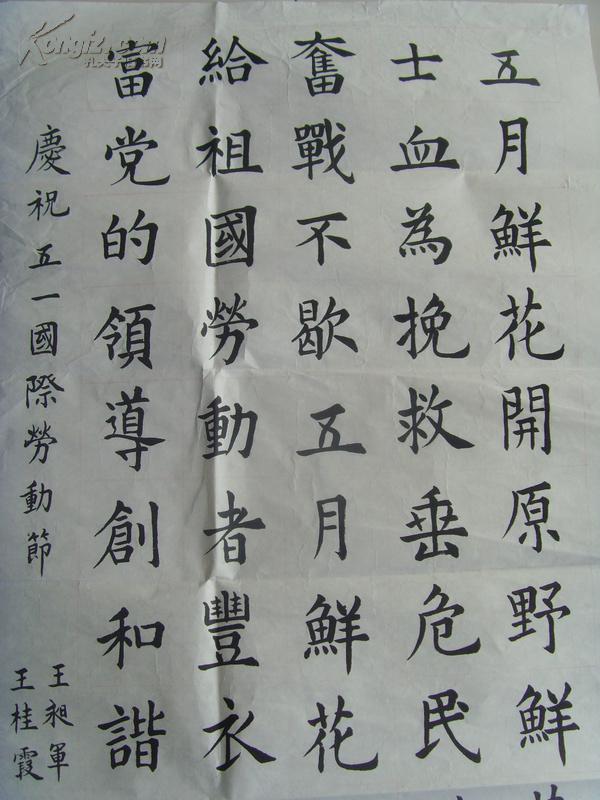 五月鮮花開原野鮮
士血為挽救垂危民
奮戰不歇五月鮮花
給祖國勞動者豐衣
富党的領導創和諧
慶祝五一國際勞動節
王昶軍
王桂霞
Kongfz.com
孔夫子旧书网